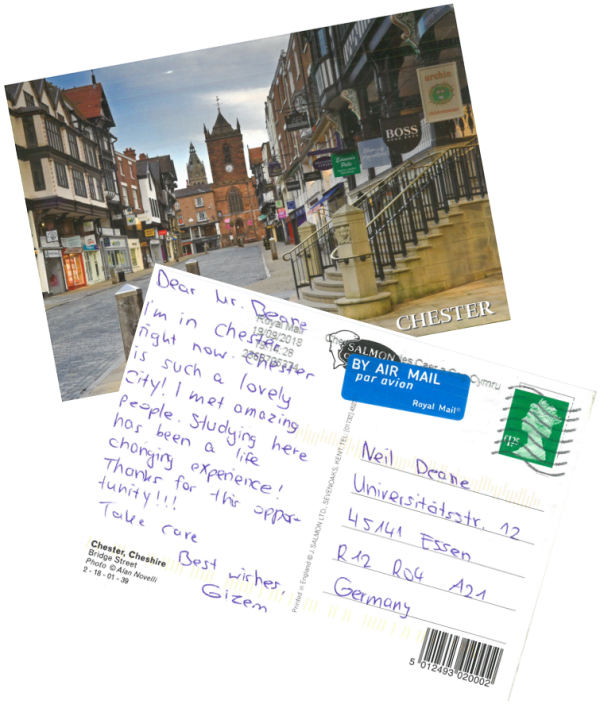 archie
BOSS
CHESTER
Dear Mr. Deane
I'm in Chester
right now. Chester
is such a lovely
city! I met amazing
people. Studying here
has been a life
changing experience!
Thanks for this oppor-
tunity!!!
Take care
Best wishes,
Gizem
Royal Mail
19/09/2018
Chester, Cheshire
Bridge Street
Photo © Alan Novelli
2 - 18 - 01 - 39
Printed in England © J. SALMON LTD., SEVENOAKS, KENT. TEL.
SALMON
Cymru
BY AIR MAIL
par avion
Royal Mail
Neil Deane
Universitätsstr. 12
45141 Essen
R12 R04 A21
Germany
5 012493 020002